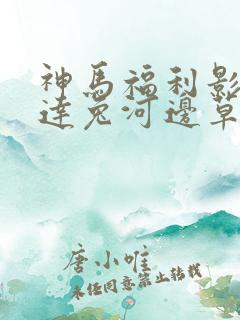 神馬福利影
達兔河邊草
唐小唯
未经同意禁止转载